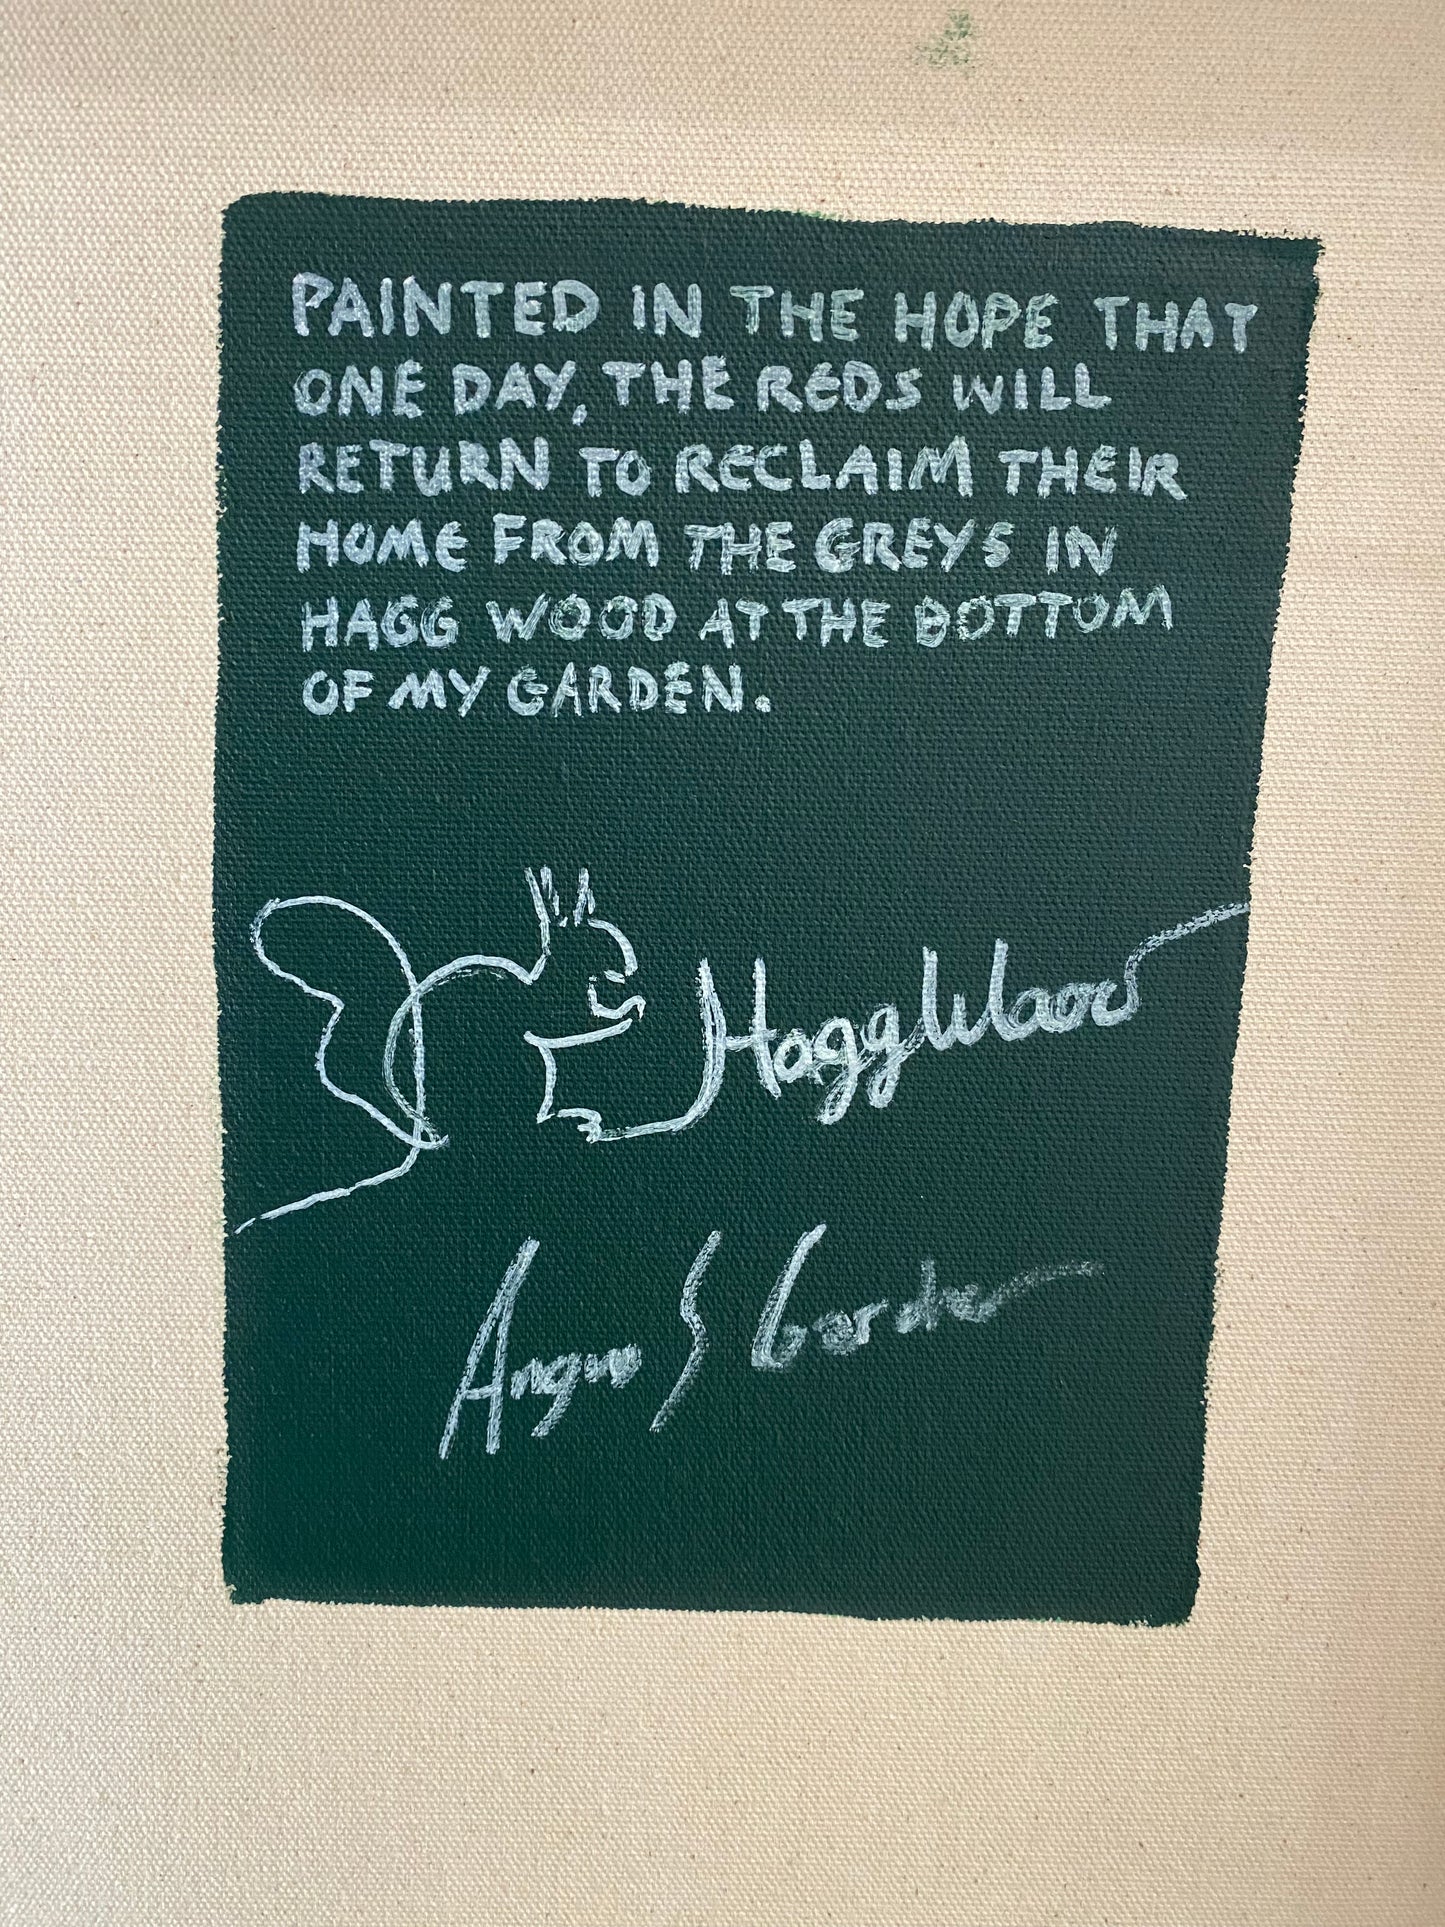 PAINTED IN THE HOPE THAT
ONE DAY, THE REDS WILL
RETURN TO RECLAIM THEIR
HOME FROM THE GREYS IN
HAGG WOOD AT THE BOTTOM
OF MY GARDEN.
HaggWood
Angus S Gardner